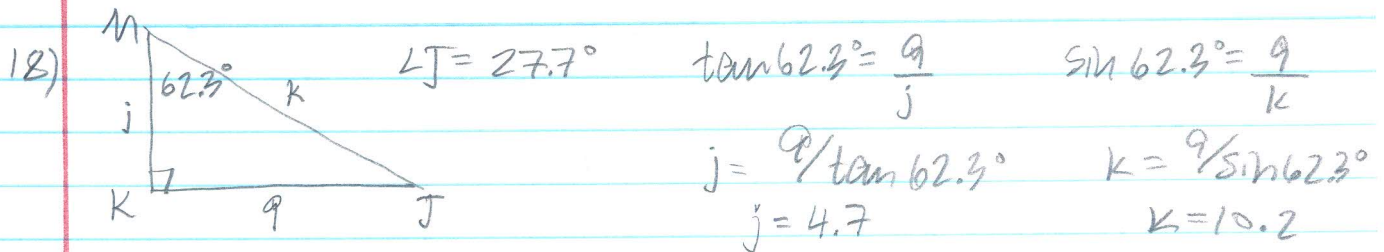 18) M 62.3° j k K 9 J
∠J = 27.7°
tan 62.3° = 9/j
j = 9/tan 62.3°
j = 4.7
sin 62.3° = 9/k
k = 9/sin 62.3°
k = 10.2